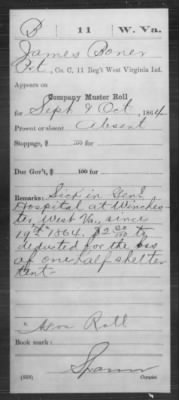 B 11 W. Va.
James Boner
Pvt., Co. C, 11 Reg't West Virginia Inf.
Appears on
Company Muster Roll
for Sept & Oct, 1864
Present or absent Absent
Stoppage, $ 100 for
Due Gov't, $ 100 for
Remarks: Sick in Genl
Hospital at Winches-
ter, West Va, since
19th 1864. $2 90/100 to
be deducted for the loss
of one half shelter
tent.
Roll
Book mark:
Copyist.